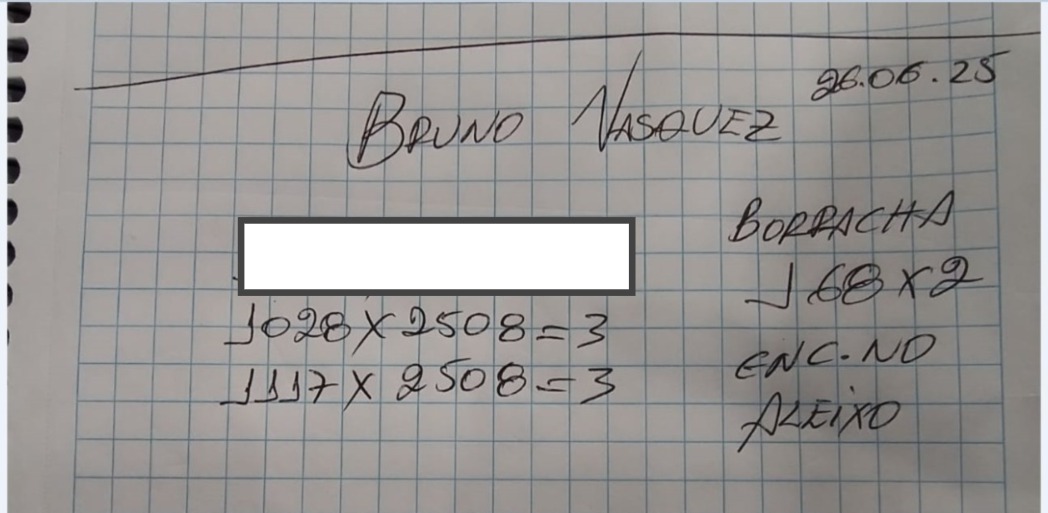 26.06.25
BRUNO VASQUEZ
1028 X 2508 = 3
1117 X 2508 = 3
BORRACHA
168 X 2
ENC. NO
ALEIXO